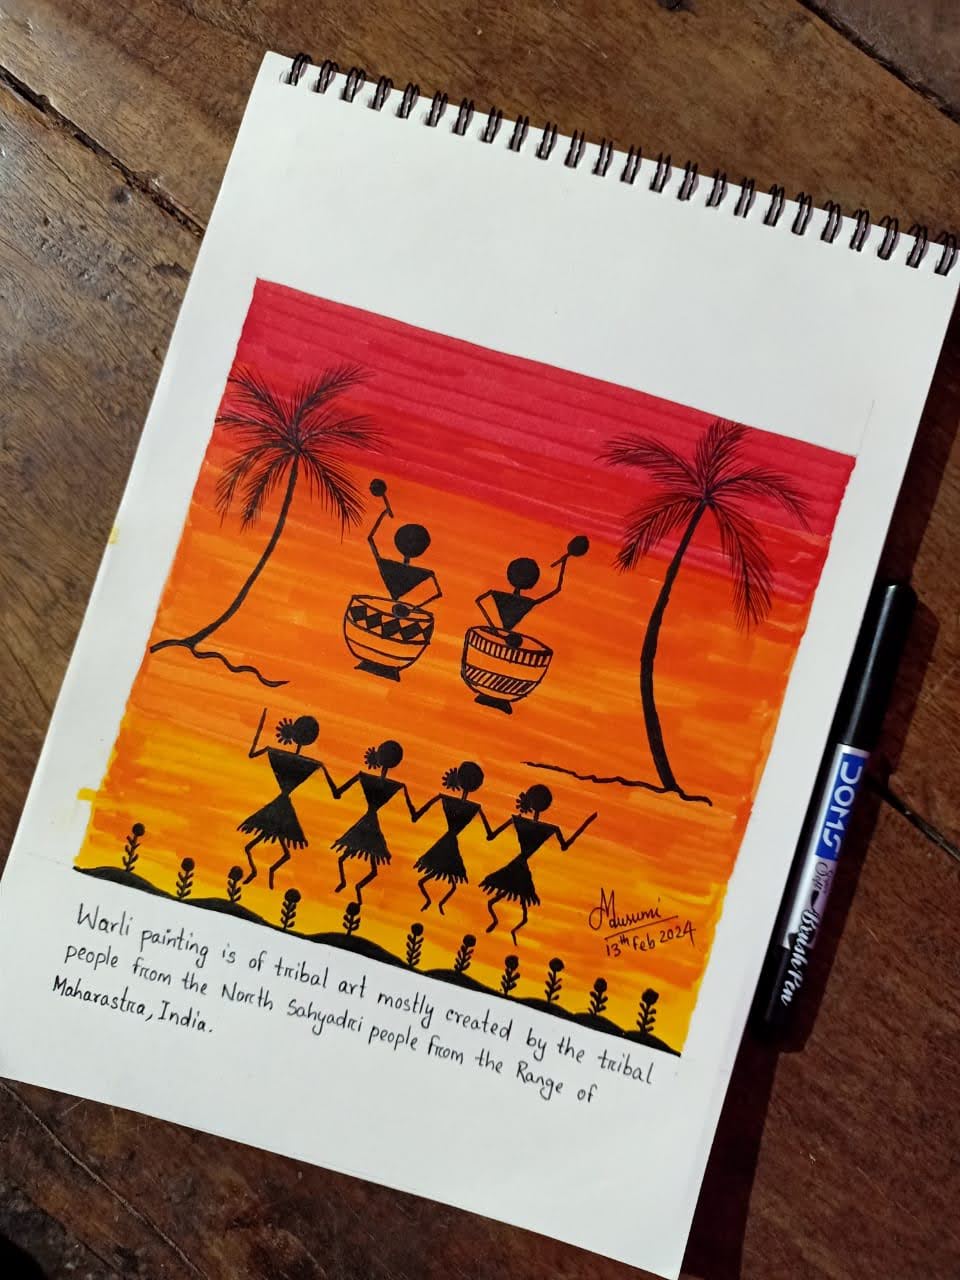 Mousumi
13th Feb 2024
Warli painting is of tribal art mostly created by the tribal
people from the North Sahyadri people from the Range of
Maharastra, India.
DOMS
Brush Pen